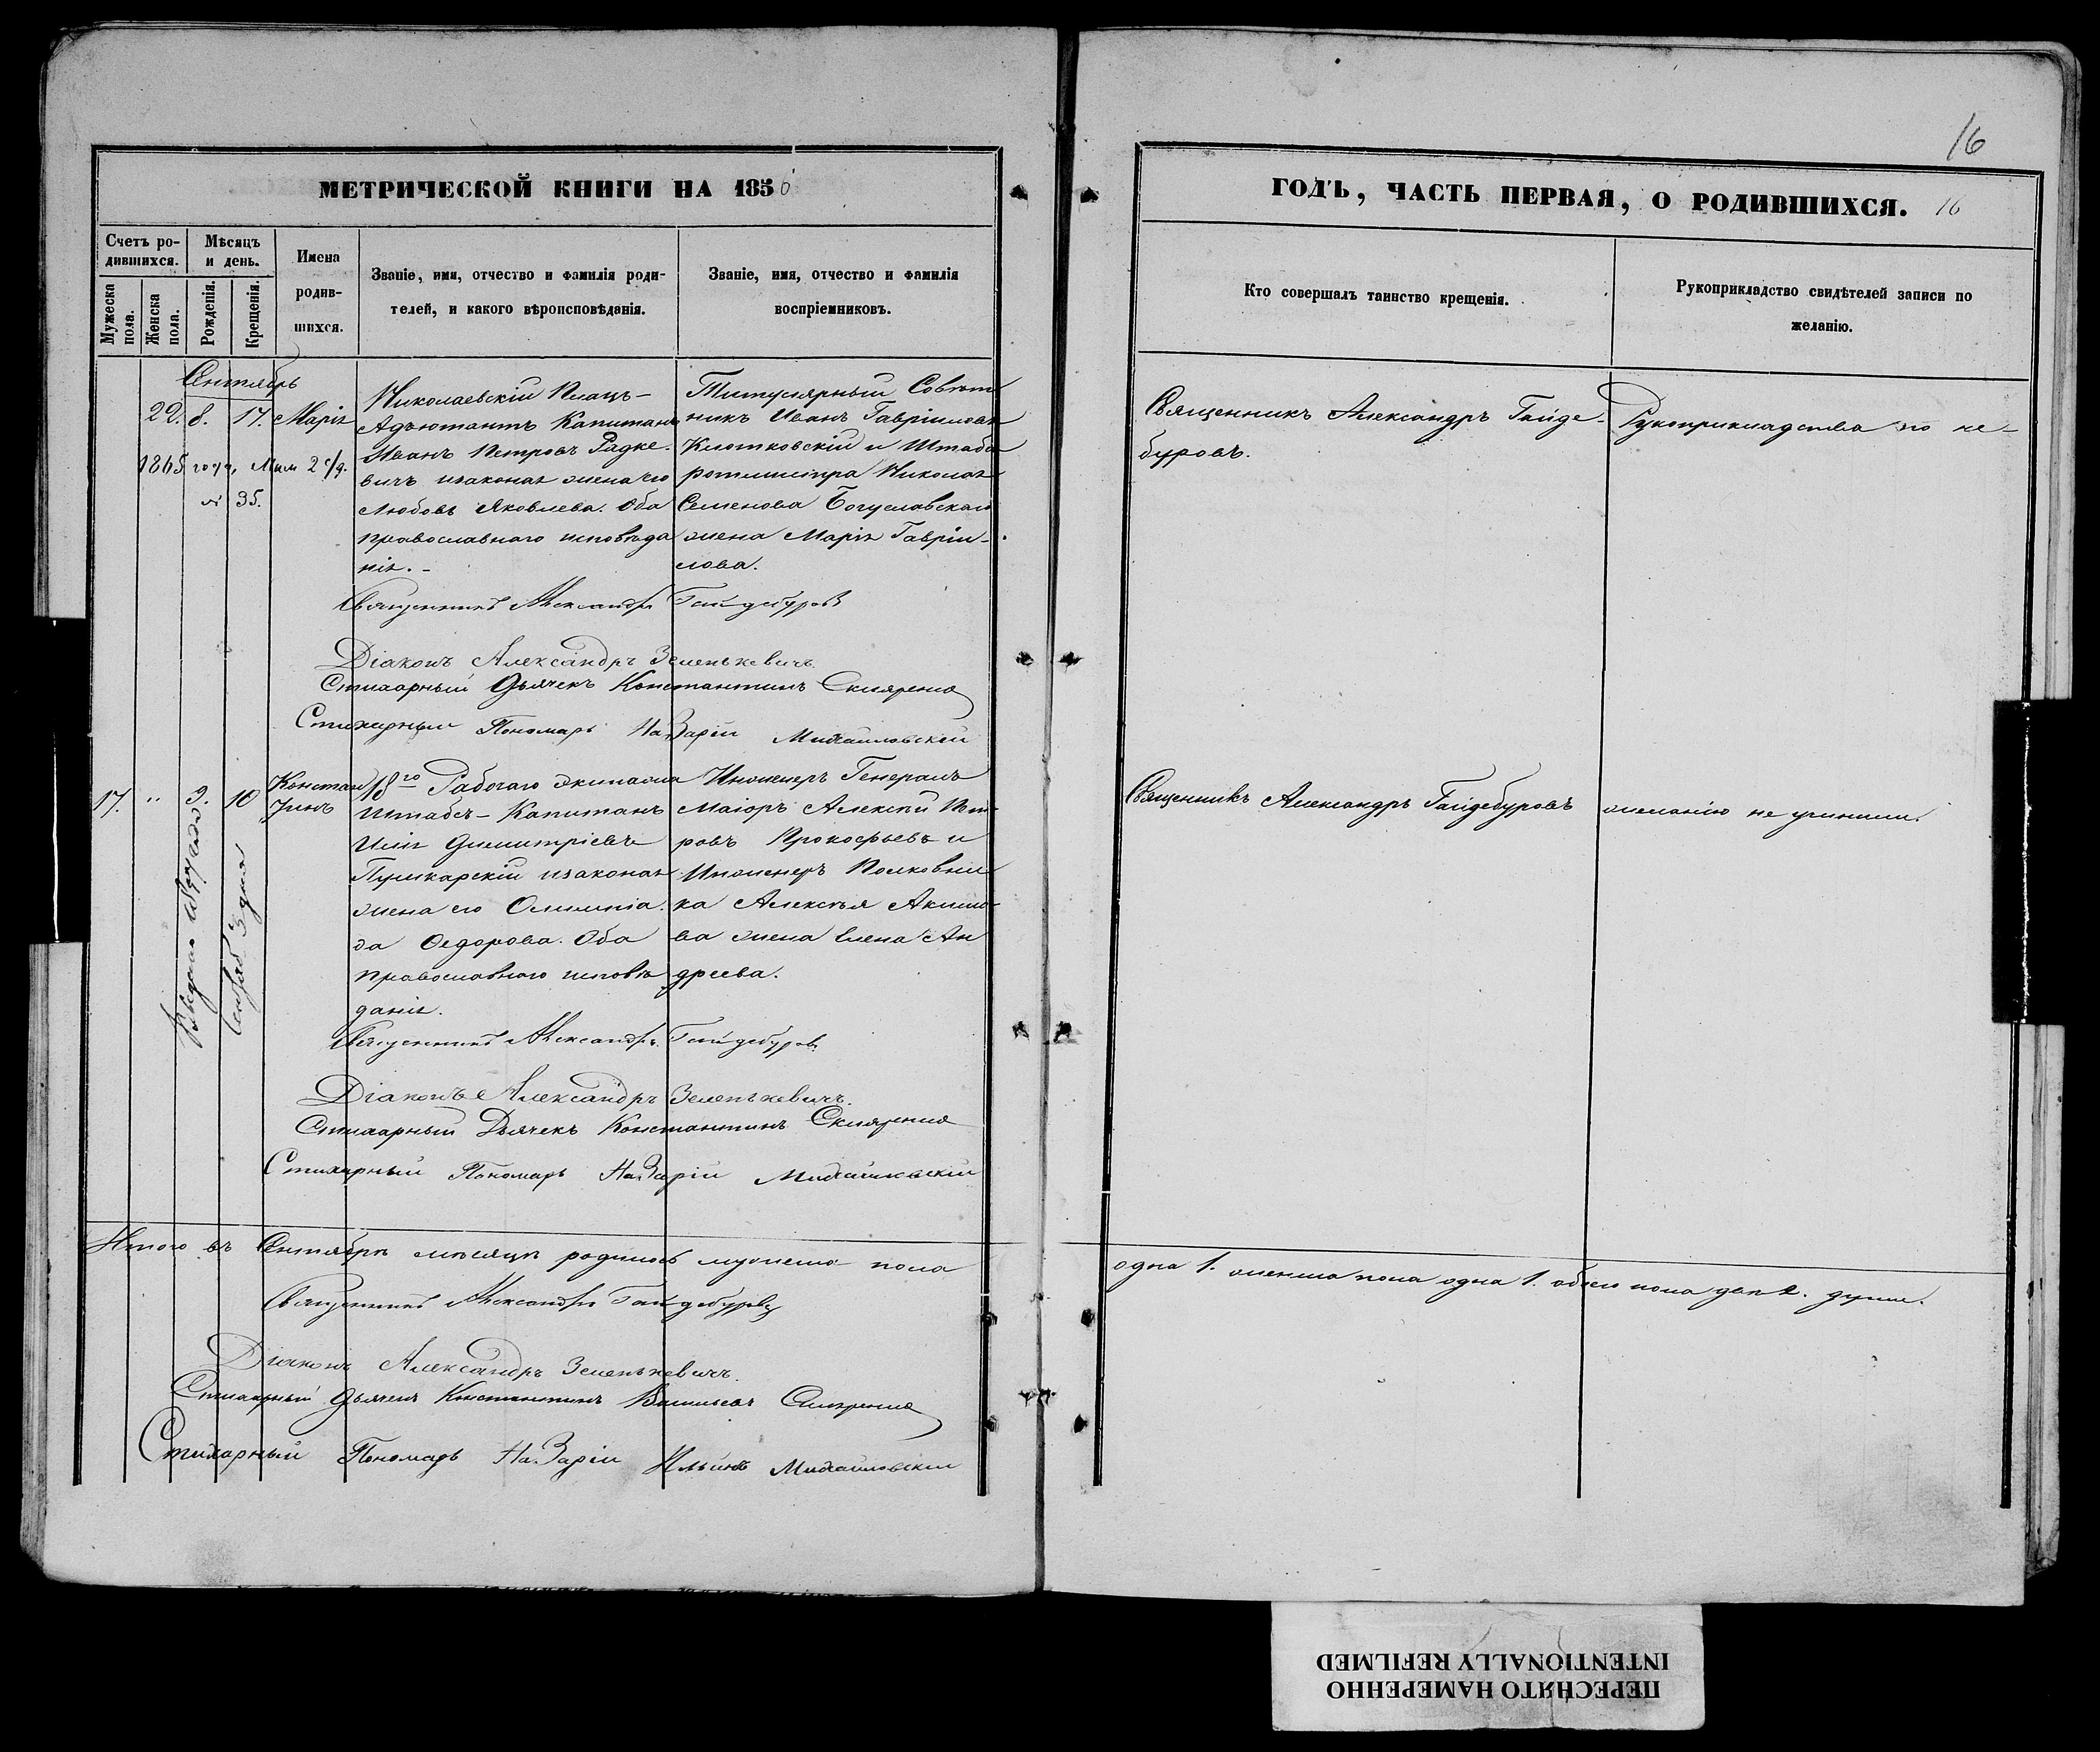 МЕТРИЧЕСКОЙ КНИГИ НА 1856
Счетъ ро-
дившихся.
Мѣсяцъ
и день.
Мужеска
пола.
Женска
пола.
Рожденія.
Крещенія.
Имена
родив-
шихся.
Званіе, имя, отчество и фамилія роди-
телей, и какого вѣроисповѣданія.
Званіе, имя, отчество и фамилія
воспріемниковъ.
Сентябрь
22. 8. 17. Марія
1865 года, 2
№ 35.
Николаевскій Плацъ-
Адъютантъ Капитанъ
Иванъ Петровъ Радке-
вичъ изаконая жена его
Любовь Яковлева. Оба
православнаго исповѣда
нія. -
Титулярный Совѣт
никъ Иванъ Гавріиловъ
Клотковскій и Штабъ
ротмистра Николая
Семенова Богуславскаго
жена Марія Гавріи-
лова.
Священникъ Александръ Гайдебуровъ
Діаконъ Александръ Зеленкевичъ.
Стихарный Дьячекъ Константинъ Скляренко
Стихарный Пономарь Назарій Михайловскій
17. " 9. 10
Констан
тинъ
18го Рабочаго экипажа
Штабсъ-Капитанъ
Илія Димитріевъ
Пушкарскій изаконая
жена его Олимпіа
да Федорова. Оба
православнаго исповѣ
данія.
Инженеръ Генералъ
Маіоръ Алексѣй Пет
ровъ Прокофьевъ и
Инженеръ Полковни
ка Алексѣя Акимо-
ва жена Елена Ан
дреева.
Священникъ Александръ Гайдебуровъ
Діаконъ Александръ Зеленкевичъ.
Стихарный Дьячекъ Константинъ Скляренко
Стихарный Пономарь Назарій Михайловскій
Итого въ Сентябрѣ мѣсяцѣ родилось мужеска пола
Священникъ Александръ Гайдебуровъ
Діаконъ Александръ Зеленкевичъ.
Стихарный Дьячекъ Константинъ Васильевъ Скляренко
Стихарный Пономарь Назарій Ильинъ Михайловскій
16
ГОДЪ, ЧАСТЬ ПЕРВАЯ, О РОДИВШИХСЯ. 16
Кто совершалъ таинство крещенія.
Рукоприкладство свидѣтелей записи по
желанію.
Священникъ Александръ Гайде-
буровъ.
Рукоприкладства по не-
Священникъ Александръ Гайдебуровъ
желанію не учинили.
одна 1. женска пола одна 1. обоего пола двѣ 2. души.
ПЕРЕСНЯТО НАМЕРЕННО
INTENTIONALLY REFILMED